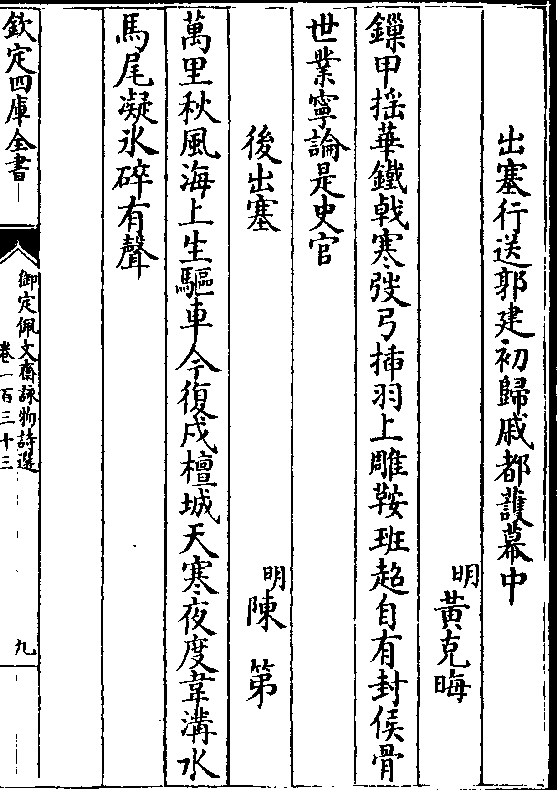 出塞行送郭建初歸戚都護幕中
明黃克晦
鏁甲揺華鐵戟寒弢弓揷羽上雕鞍班超自有封侯骨
世業寧論是史官
後出塞
明陳第
萬里秋風海上生驅車今復戍檀城天寒夜度韋溝水
馬尾凝氷碎有聲
欽定四庫全書
御定佩文齋詠物詩選
卷一百三十三
九